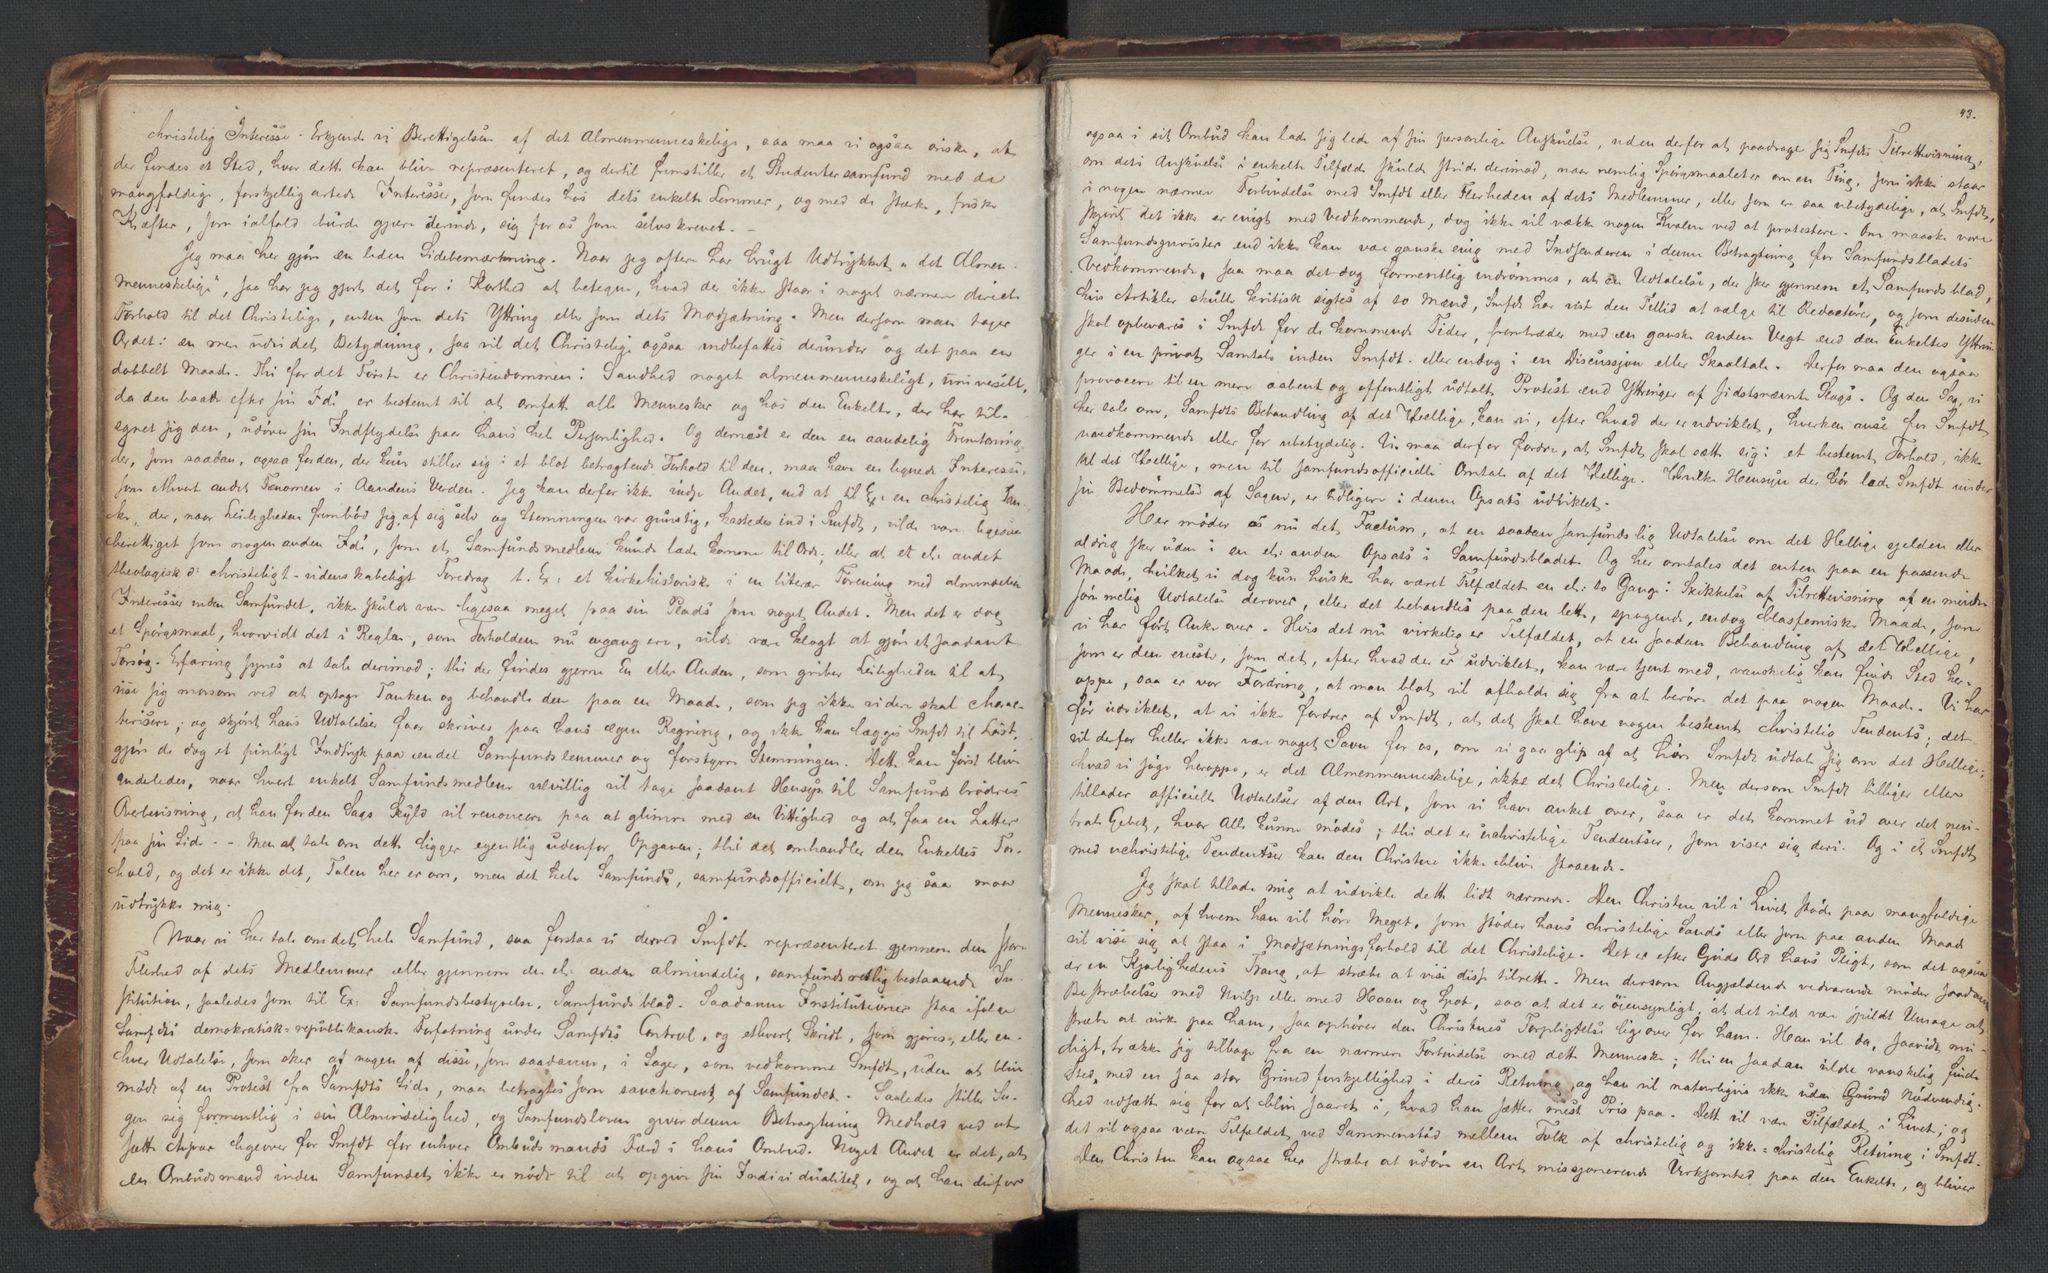 christelig Interesse. Erkjende vi Berettigelsen af det Almenmenneskelige, saa maa vi ogsaa ønske, at
der findes et Sted, hvor dette kan blive repræsenteret, og dertil fremstiller et Studentersamfund med de
mangfoldige, forskjelligartede Interesser, som findes hos dets enkelte Lemmer, og med de stærke, friske
Kræfter, som ialfald burde gjøre derinde, sig for os som selvskrevet. –
Jeg maa her gjøre en liden Sidebemærkning. Naar jeg oftere har brugt Udtrykket „det Almen-
menneskelige", saa har jeg gjort det for i Korthed at betegne, hvad der ikke staar i noget nærmere direct
Forhold til det Christelige, enten som dets Yttring eller som dets Modsætning. Men dersom man tager
Ordet i en mere udvidet Betydning, saa vil det Christelige ogsaa indbefattes derunder og det paa en
dobbelt Maade. Thi for det Første er Christendommen i Sandhed noget almenmenneskeligt, universelt,
da den baade efter sin Idé er bestemt til at omfatte alle Mennesker og hos den Enkelte, der har til-
egnet sig den, udøver sin Indflydelse paa hans hele Personlighed. Og dernæst er den en aandelig Fremtoning,
der, som saadan, ogsaa for den, der kun stiller sig i et blot betragtende Forhold til den, maa have en lignende Interesse,
som ethvert andet Fænomen i Aandens Verden. Jeg kan derfor ikke indse Andet, end at til Ex: en christelig Tan-
ke, der, naar Leiligheden frembød sig af sig selv og Stemningen var gunstig, kastedes ind i Smfdt, vilde være ligesaa
berettiget som nogen anden Idé, som et Samfundsmedlem kunde lade komme til Orde, eller at et el: andet
theologisk ɔ: christeligt-videnskabeligt Foredrag t. Ex: et kirkehistorisk i en literær Forening med almindelige
Interesser inden Samfundet, ikke skulde være ligesaa meget paa sin Plads som noget Andet. Men det er dog
et Spørgsmaal, hvorvidt det i Reglen, som Forholdene nu engang ere, vilde være klogt at gjøre et saadant
Forsøg. Erfaring synes at tale derimod; thi der findes gjerne En eller Anden, som griber Leiligheden til at
vise sig morsom ved at optage Tanken og behandle den paa en Maade, som jeg ikke videre skal charac-
terisere; og skjønt hans Udtalelser faar skrives paa hans egen Regning, og ikke kan lægges Smfdt til Last,
gjøre de dog et pinligt Indtryk paa endel Samfundslemmer og forstyrre Stemningen. Dette kan først blive
anderledes, naar hvert enkelt Samfundsmedlem velvillig vil tage saadant Hensyn til Samfundsbrødres
Overbevisning, at han for den Sags Skyld vil renoncere paa at glimre med en Vittighed og at faa en Latter
paa sin Side. – Men at tale om dette ligger egentlig udenfor Opgaven; thi det omhandler den Enkeltes For-
hold, og det er ikke det, Talen her er om, men det hele Samfunds, samfundsofficielt, om jeg saa maa
udtrykke mig.
Naar vi her tale om det hele Samfund, saa forstaa vi derved Smfdt repræsenteret gjennem den store
Flerhed af dets Medlemmer eller gjennem den el: anden almindelig, samfundsretlig bestaaende In-
stitution, saaledes som til Ex: Samfundsbestyrelse, Samfundsblad. Saadanne Institutioner staa ifølge
Samfdts demokratisk-republikanske Forfatning under Samfdts Control, og ethvert Skridt, som gjøres, eller en-
hver Udtalelse, som sker af nogen af disse, som saadanne, i Sager, som vedkomme Smfdt, uden at blive
mødt af en Protest fra Samfdts Side, maa betragtes som sanctioneret af Samfundet. Saaledes stiller Sa-
gen sig formentlig i sin Almindelighed, og Samfundsloven giver denne Betragtning Medhold ved at
sætte Ansvar ligeover for Smfdt for enhver Ombudsmands Færd i hans Ombud. Noget Andet er det, at
en Ombudsmand inden Samfundet ikke er nødt til at opgive sin Individualitet, og at han derfor
43.
ogsaa i sit Ombud kan lade sig lede af sin personlige Anskuelse, uden derfor at paadrage sig Smfdts Tilrettevisning,
om dets Anskuelse i enkelte Tilfælde skulde stride derimod, naar nemlig Spørgsmaalet er om en Ting, som ikke staar
i nogen nærmere Forbindelse med Smfdt eller Flerheden af dets Medlemmer, eller som er saa ubetydelige, at Smfdt,
skjønt det ikke er enigt med Vedkommende, dog ikke vil vække nogen Kvalm ved at protestere. Om maaske vore
Samfundsjurister end ikke kan være ganske enig med Indsenderen i denne Betragtning for Samfundsbladets
Vedkommende, saa maa det dog formentlig indrømmes, at en Udtalelse, der sker gjennem et Samfundsblad,
hvis Artikler skulle kritisk sigtes af to Mænd, Smfdt har vist den Tillid at vælge til Redactører, og som desuden
skal opbevares i Smfdt for de kommende Tider, fremtræder med en ganske anden Vegt end den Enkeltes Yttrin-
ger i en privat Samtale inden Smfdt. eller endog i en Discussjon eller Skaaltale. Derfor maa den ogsaa
provocere til en mere aabent og offentligt udtalt Protest end Yttringer af sidstnævnte Slags. Og den Sag, vi
her tale om, Samfdts Behandling af det Hellige, kan vi, efter hvad der er udviklet, hverken anse for Smfdt
uvedkommende eller for ubetydelig. Vi maa derfor fordre, at Smfdt skal sætte sig i et bestemt Forhold, ikke
til det Hellige, men til samfundsofficielle Omtale af det Hellige. Hvilke Hensyn der bør lede Smfdt under
sin Bedømmelse af Sagen, er tidligere i denne Opsats udviklet.
Her møder os nu det Factum, at en saadan samfundslig Udtalelse om det Hellige sjelden eller
aldrig sker uden i en el: anden Opsats i Samfundsbladet. Og her omtales det enten paa en passende
Maade, hvilket vi dog kun huske har været Tilfældet en el: to Gange i Skikkelse af Tilrettevisning af en mindre
sømmelig Udtalelse derover, eller det behandles paa den lette, spøgende, endog blasfemiske Maade, som
vi har ført Anke over. Hvis det nu virkelig er Tilfældet, at en saadan Behandling af det Hellige,
som er den eneste, som det, efter hvad der er udviklet, kan være tjent med, vanskelig kan finde Sted her-
oppe, saa er vor Fordring, at man blot vil afholde sig fra at berøre det paa nogen Maade. Vi har
før udviklet, at vi ikke fordrer af Smfdt, at det skal have nogen bestemt christelig Tendents; det
vil derfor heller ikke være noget Savn for os, om vi gaa glip af at høre Smfdt udtale sig om det Hellige;
hvad vi søge heroppe, er det Almenmenneskelige, ikke det Christelige. Men dersom Smfdt billiger eller
tillader officielle Udtalelser af den Art, som vi have anket over, saa er det kommet ud over det neu-
trale Gebet, hvor Alle kunne mødes; thi det er uchristelige Tendentser, som viser sig deri. Og i et Smfdt
med uchristelige Tendentser kan den Christne ikke blive staaende.
Jeg skal tillade mig at udvikle dette lidt nærmere. Den Christne vil i Livet støde paa mangfoldige
Mennesker, af hvem han vil høre Meget, som støder hans christelige Sands eller som paa anden Maade
vil vise sig at staa i Modsætningsforhold til det Christelige. Det er efter Guds Ord hans Pligt, som det ogsaa
er en Kjærlighedens Trang, at stræbe at vise disse tilrette. Men dersom Angjældende vedvarende møder saadanne
Bestræbelser med Uvilje eller med Haan og Spot, saa at det er øiensynligt, at det vilde være spildt Umage at
stræbe at virke paa ham, saa ophører den Christnes Forpligtelse ligeover for ham. Han vil da, saavidt mu-
ligt, trække sig tilbage fra en nærmere Forbindelse med dette Menneske; thi en saadan vilde vanskelig finde
Sted med en saa stor Grundforskjellighed i deres Retning, og han vil naturligvis ikke uden Grund Nødvendig-
hed udsætte sig for at blive saaret i, hvad han sætter mest Pris paa. Dette vil være Tilfældet i Livet; og
det vil ogsaa være Tilfældet ved Sammenstød mellem Folk af christelig og ikke-christelig Retning i Smfdt.
Den Christne kan ogsaa her stræbe at udøve en Art missjonerende Virksomhed paa den Enkelte, og bliver